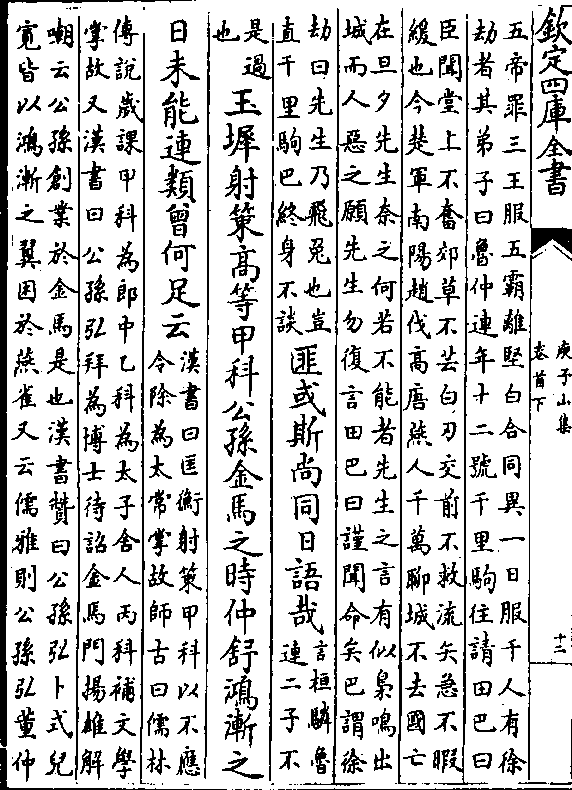 欽定四庫全書
庾子山集
卷首下
十二
五帝罪三王服五霸離堅白合同異一日服千人有徐
劫者其弟子曰魯仲連年十二號千里駒往請田巴曰
臣聞堂上不奮郊草不芸白刃交前不救流矢急不暇
緩也今楚軍南陽趙伐高唐燕人千萬聊城不去國亡
在旦夕先生奈之何若不能者先生之言有似梟鳴出
城而人惡之願先生勿復言田巴曰謹聞命矣巴謂徐
劫曰先生乃飛兎也豈
直千里駒巴終身不談
匪或斯尚同日語哉
言桓驎魯
連二子不
是過
也
玉墀射策高等甲科公孫金馬之時仲舒鴻漸之
日未能連類曾何足云
漢書曰匡衡射策甲科以不應
令除為太常掌故師古曰儒林
傳說歲課甲科為郎中乙科為太子舍人丙科補文學
掌故又漢書曰公孫弘拜為博士待詔金馬門揚雄解
嘲云公孫創業於金馬是也漢書贊曰公孫弘卜式兒
寛皆以鴻漸之翼困於燕雀又云儒雅則公孫弘董仲